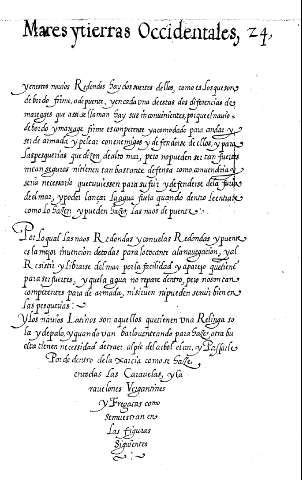 Mares y tierras Occidentales, 24.
y en estos navios Redondos hay dos suertes dellos, como es los que son
de bordo firme, o de puente, y en cada una de estas dos diferencias de
maneges que asi se llaman hay sus inconvinientes, porque el navio
de bordo y mareage firme es competente y acomodado para andar y
ser de armada, y pelear con enemigos y defenderse de ellos, y para
las pesquerias que dizen de alto mar, pero no pueden ser tan fuertes
ni tan seguros ni tienen tan bastante defensa como convendria y
seria necesario que tuviessen para sufrir y defenderse de la furia
del mar, y poder lançar la agua fuera quando dentro le entrasse
como lo hazen y pueden hazer las naos de puente.
Por lo qual las naos Redondas y con velas Redondas y puente
es la mejor invencion de todas para lo tocante a la navegacion, y al
Resistir y librarse del mar por la facilidad y aparejo que tiene
para ser fuertes, y que la agua no repare dentro, pero no son tan
competentes para de armada, ni sirven ni pueden servir bien en
las pesquerias:
Y los navios Latinos son aquellos que tienen una Relinga so
la y de palo, y quando van barloventeando para hazer otra bu
elta tienen necessidad de traer al pie del arbol el car, y Passarle
Por de dentro de la xarcia como se haze
en todas las Caravelas, y la
raues lones Vergantines
y Fregatas como
se muestran en
las figuras
siguientes